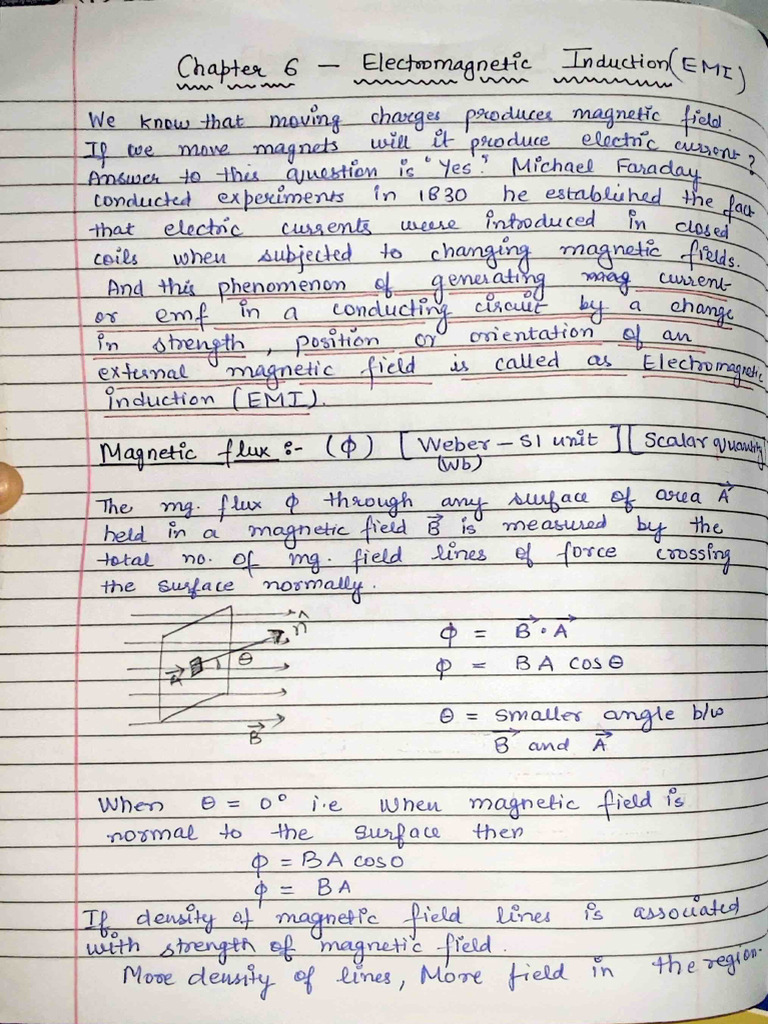 Chapter 6 - Electromagnetic Induction (EMI)
We know that moving charges produces magnetic field.
If we move magnets will it produce electric current?
Answer to this question is "Yes". Michael Faraday
conducted experiments in 1830 he established the fact
that electric currents were introduced in closed
coils when subjected to changing magnetic fields.
And this phenomenon of generating mag current
or emf in a conducting circuit by a change
in strength, position or orientation of an
external magnetic field is called as Electromagnetic
induction (EMI).
Magnetic flux :- (ϕ) [Weber - SI unit] [Scalar quantity]
(Wb)
The mg. flux ϕ through any surface of area A⃗
held in a magnetic field B⃗ is measured by the
total no. of mg. field lines of force crossing
the surface normally.
n̂
ϕ = B⃗ · A⃗
A⃗ θ
ϕ = BA cosθ
B⃗
θ = smaller angle b/w
B⃗ and A⃗
When θ = 0° i.e when magnetic field is
normal to the surface then
ϕ = BA cos0
ϕ = BA
If density of magnetic field lines is associated
with strength of magnetic field.
More density of lines, More field in the region.